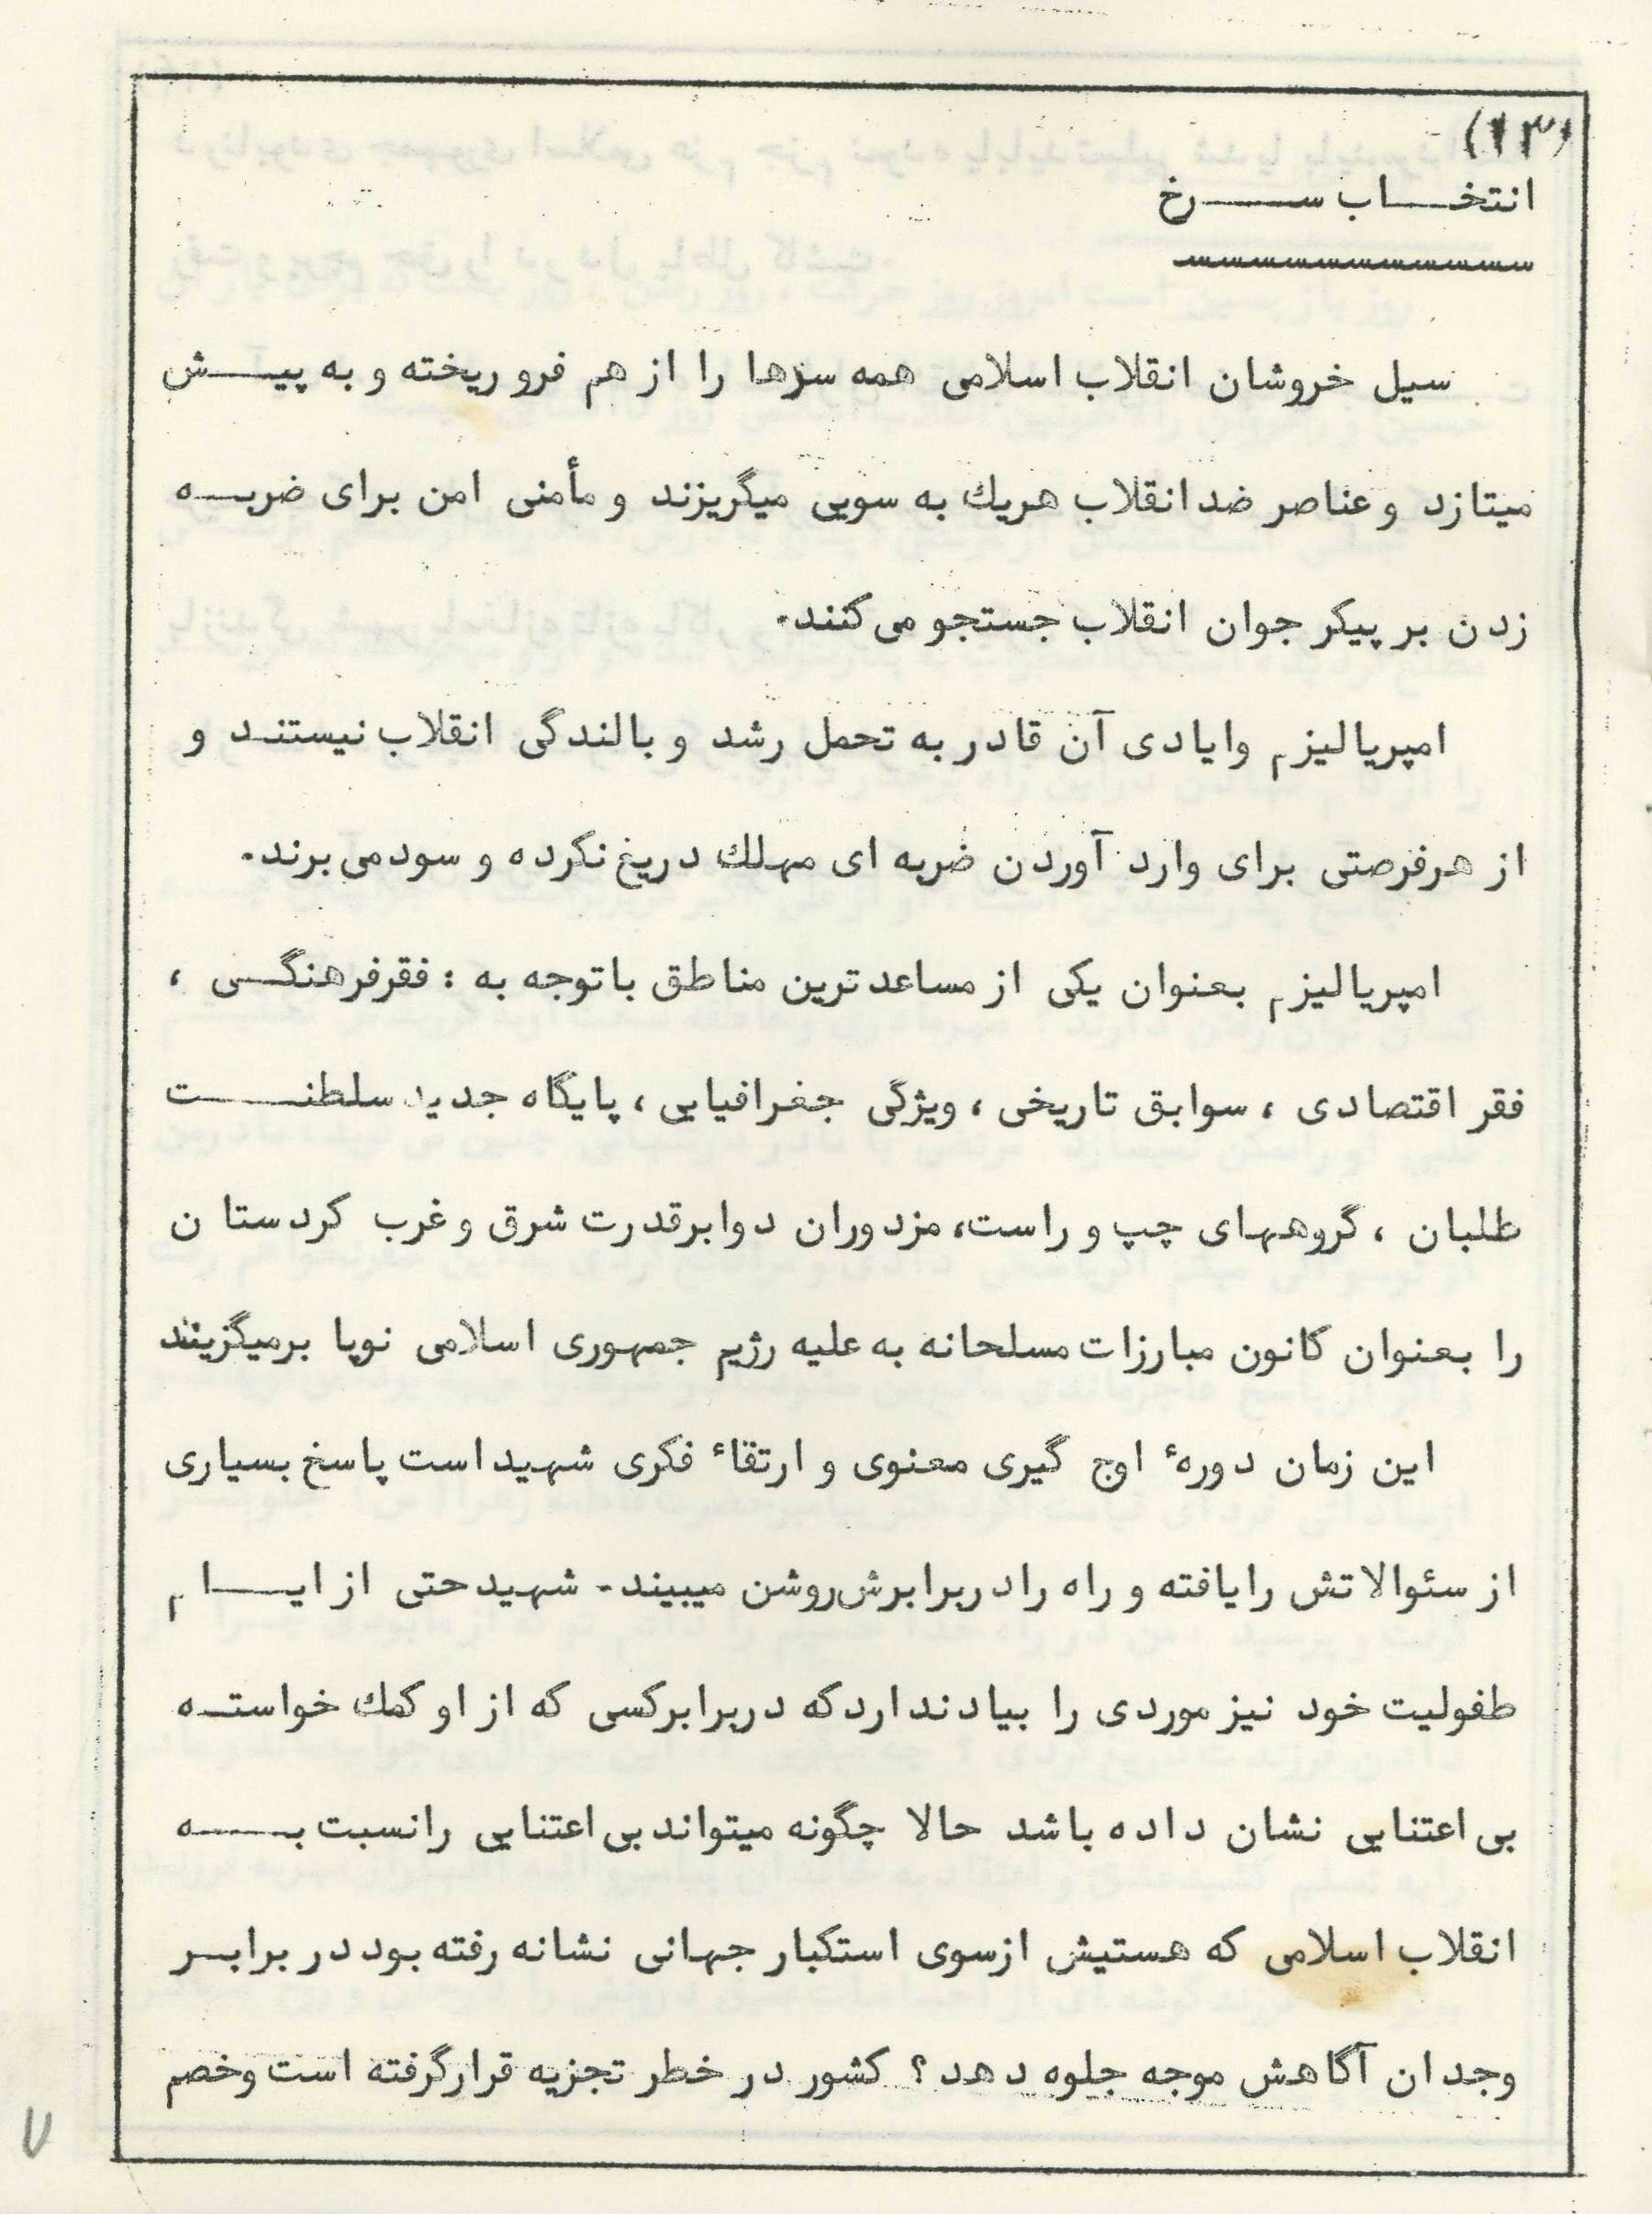 (۱۳)
انتخاب سرخ
سیل خروشان انقلاب اسلامی همه سدها را از هم فرو ریخته و به پیش
میتازد و عناصر ضد انقلاب هریك به سویی میگریزند و مأمنی امن برای ضربه
زدن بر پیکر جوان انقلاب جستجو می کنند.
امپریالیزم وایادی آن قادر به تحمل رشد و بالندگی انقلاب نیستند و
از هرفرصتی برای وارد آوردن ضربه ای مهلك دریغ نکرده و سود می برند.
امپریالیزم بعنوان یکی از مساعد ترین مناطق با توجه به : فقر فرهنگی ،
فقر اقتصادی ، سوابق تاریخی ، ویژگی جغرافیایی ، پایگاه جدید سلطنت
طلبان ، گروههای چپ و راست، مزدوران دو ابرقدرت شرق و غرب کردستان
را بعنوان کانون مبارزات مسلحانه به علیه رژیم جمهوری اسلامی نوپا برمیگزینند
این زمان دورهٔ اوج گیری معنوی و ارتقاء فکری شهید است پاسخ بسیاری
از سئوالاتش را یافته و راه را در برابرش روشن میبیند. شهید حتی از ایام
طفولیت خود نیز موردی را بیاد ندارد که در برابر کسی که از او کمك خواسته
بی اعتنایی نشان داده باشد حالا چگونه میتواند بی اعتنایی را نسبت به
انقلاب اسلامی که هستیش ازسوی استکبار جهانی نشانه رفته بود در برابر
وجدان آگاهش موجه جلوه دهد ؟ کشور در خطر تجزیه قرار گرفته است و خصم
۷